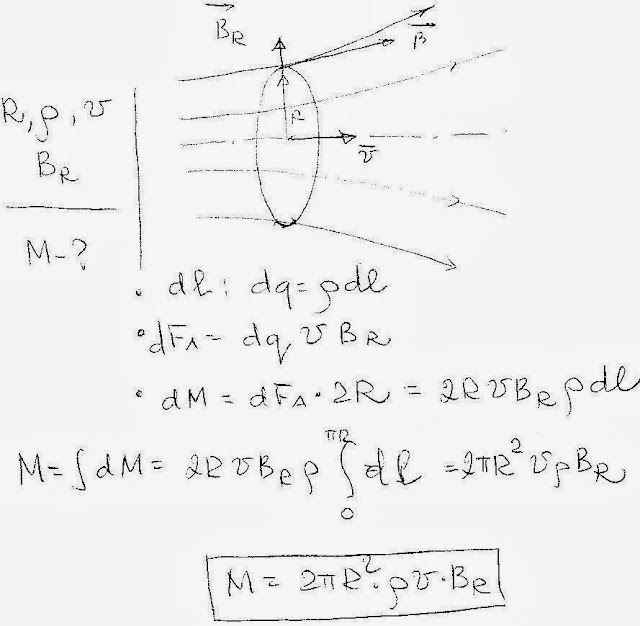 B⃗_R
B⃗
R
v̄
R, ρ, v
B_R
M-?
· dl : dq = ρdl
· dF_Л = dq v B_R
· dM = dF_Л · 2R = 2R v B_R ρdl
M = ∫dM = 2R v B_R ρ ∫_0^{πR} dl = 2πR² v ρ B_R
M = 2πR² · ρ v · B_R